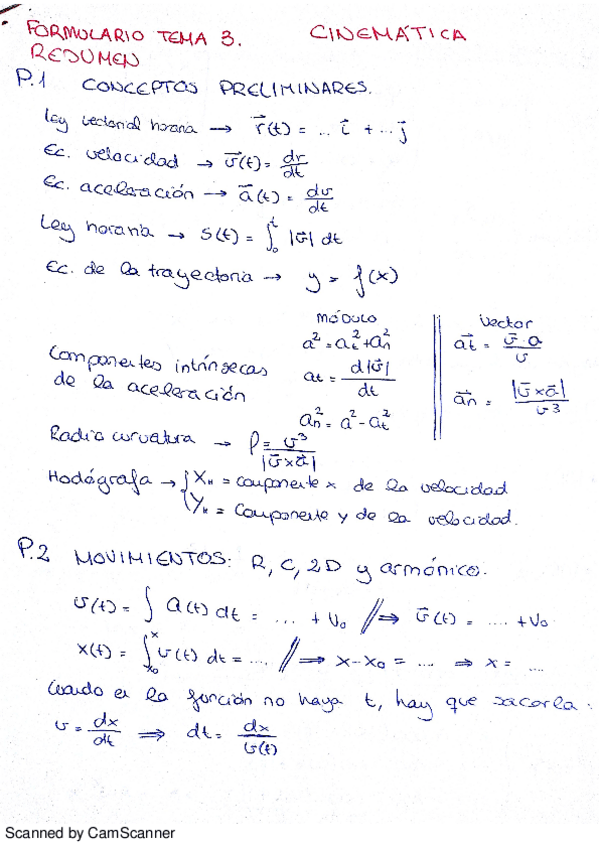 FORMULARIO TEMA 3. CINEMÁTICA
RESUMEN
P.1 CONCEPTOS PRELIMINARES.
Ley vectorial horaria → r⃗(t) = ... i⃗ + ... j⃗
Ec. velocidad → v⃗(t) = dr/dt
Ec. aceleración → a⃗(t) = dv/dt
Ley horaria → s(t) = ∫₀ᵗ |v⃗| dt
Ec. de la trayectoria → y = f(x)
MÓDULO Vector
a² = at² + an² a⃗t = v⃗·a/v
Componentes intrínsecas at = d|v⃗|/dt
de la aceleración a⃗n = |v⃗×a⃗|/v³
an² = a² - at²
Radio curvatura → ρ = v³/|v⃗×a⃗|
Hodógrafa → { Xₕ = componente x de la velocidad
Yₕ = Componente y de la velocidad.
P.2 MOVIMIENTOS: R, C, 2D y armónico.
v(t) = ∫ a(t) dt = .... + V₀ // ⇒ v⃗(t) = .... + V₀
x(t) = ∫ₓ₀ˣ v(t) dt = .... // ⇒ x-x₀ = .... ⇒ x = ....
Cuando en la función no haya t, hay que sacarla:
v = dx/dt ⇒ dt = dx/v(t)
Scanned by CamScanner